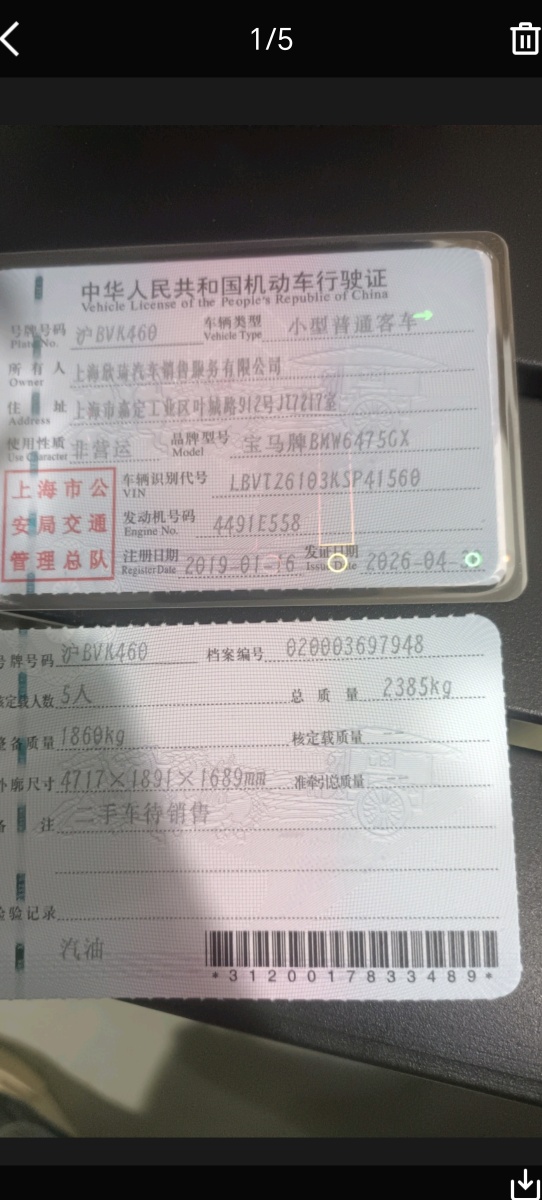 1/5
中华人民共和国机动车行驶证
Vehicle License of the People's Republic of China
号牌号码 Plate No. 沪BVK460 车辆类型 Vehicle Type 小型普通客车
所有人 Owner 上海欣琦汽车销售服务有限公司
住址 Address 上海市嘉定工业区叶城路912号JT7217室
使用性质 Use Character 非营运 品牌型号 Model 宝马牌BMW6475GX
上海市公安局交通管理总队
车辆识别代号 VIN LBVTZ6103KSP41560
发动机号码 Engine No. 4491E558
注册日期 Register Date 2019-01-16 发证日期 Issue Date 2026-04-
号牌号码 沪BVK460 档案编号 020003697948
核定载人数 5人 总质量 2385kg
整备质量 1860kg 核定载质量 --
外廓尺寸 4717×1891×1689mm 准牵引总质量 --
备注 二手车待销售
检验记录
汽油
*3120017833489*